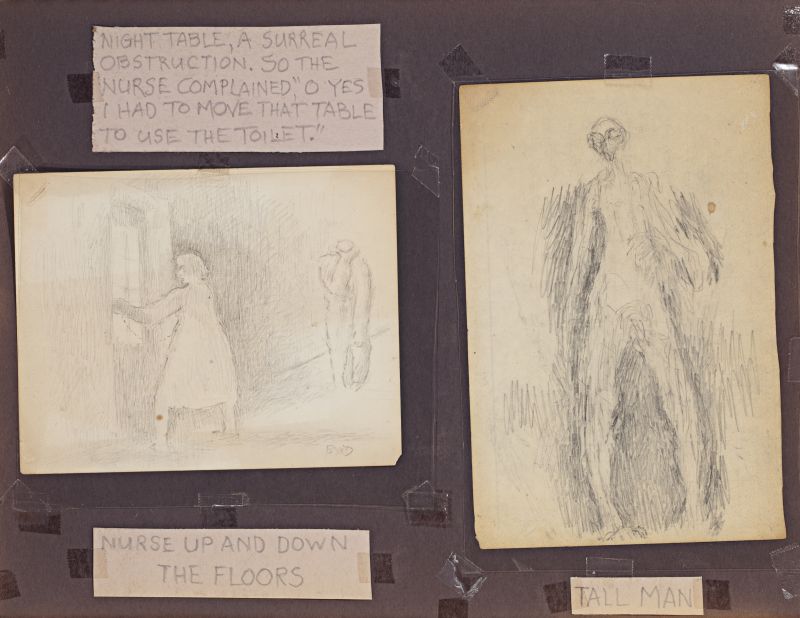 NIGHT TABLE, A SURREAL
OBSTRUCTION. SO THE
NURSE COMPLAINED, "O YES
I HAD TO MOVE THAT TABLE
TO USE THE TOILET."
NURSE UP AND DOWN
THE FLOORS
TALL MAN